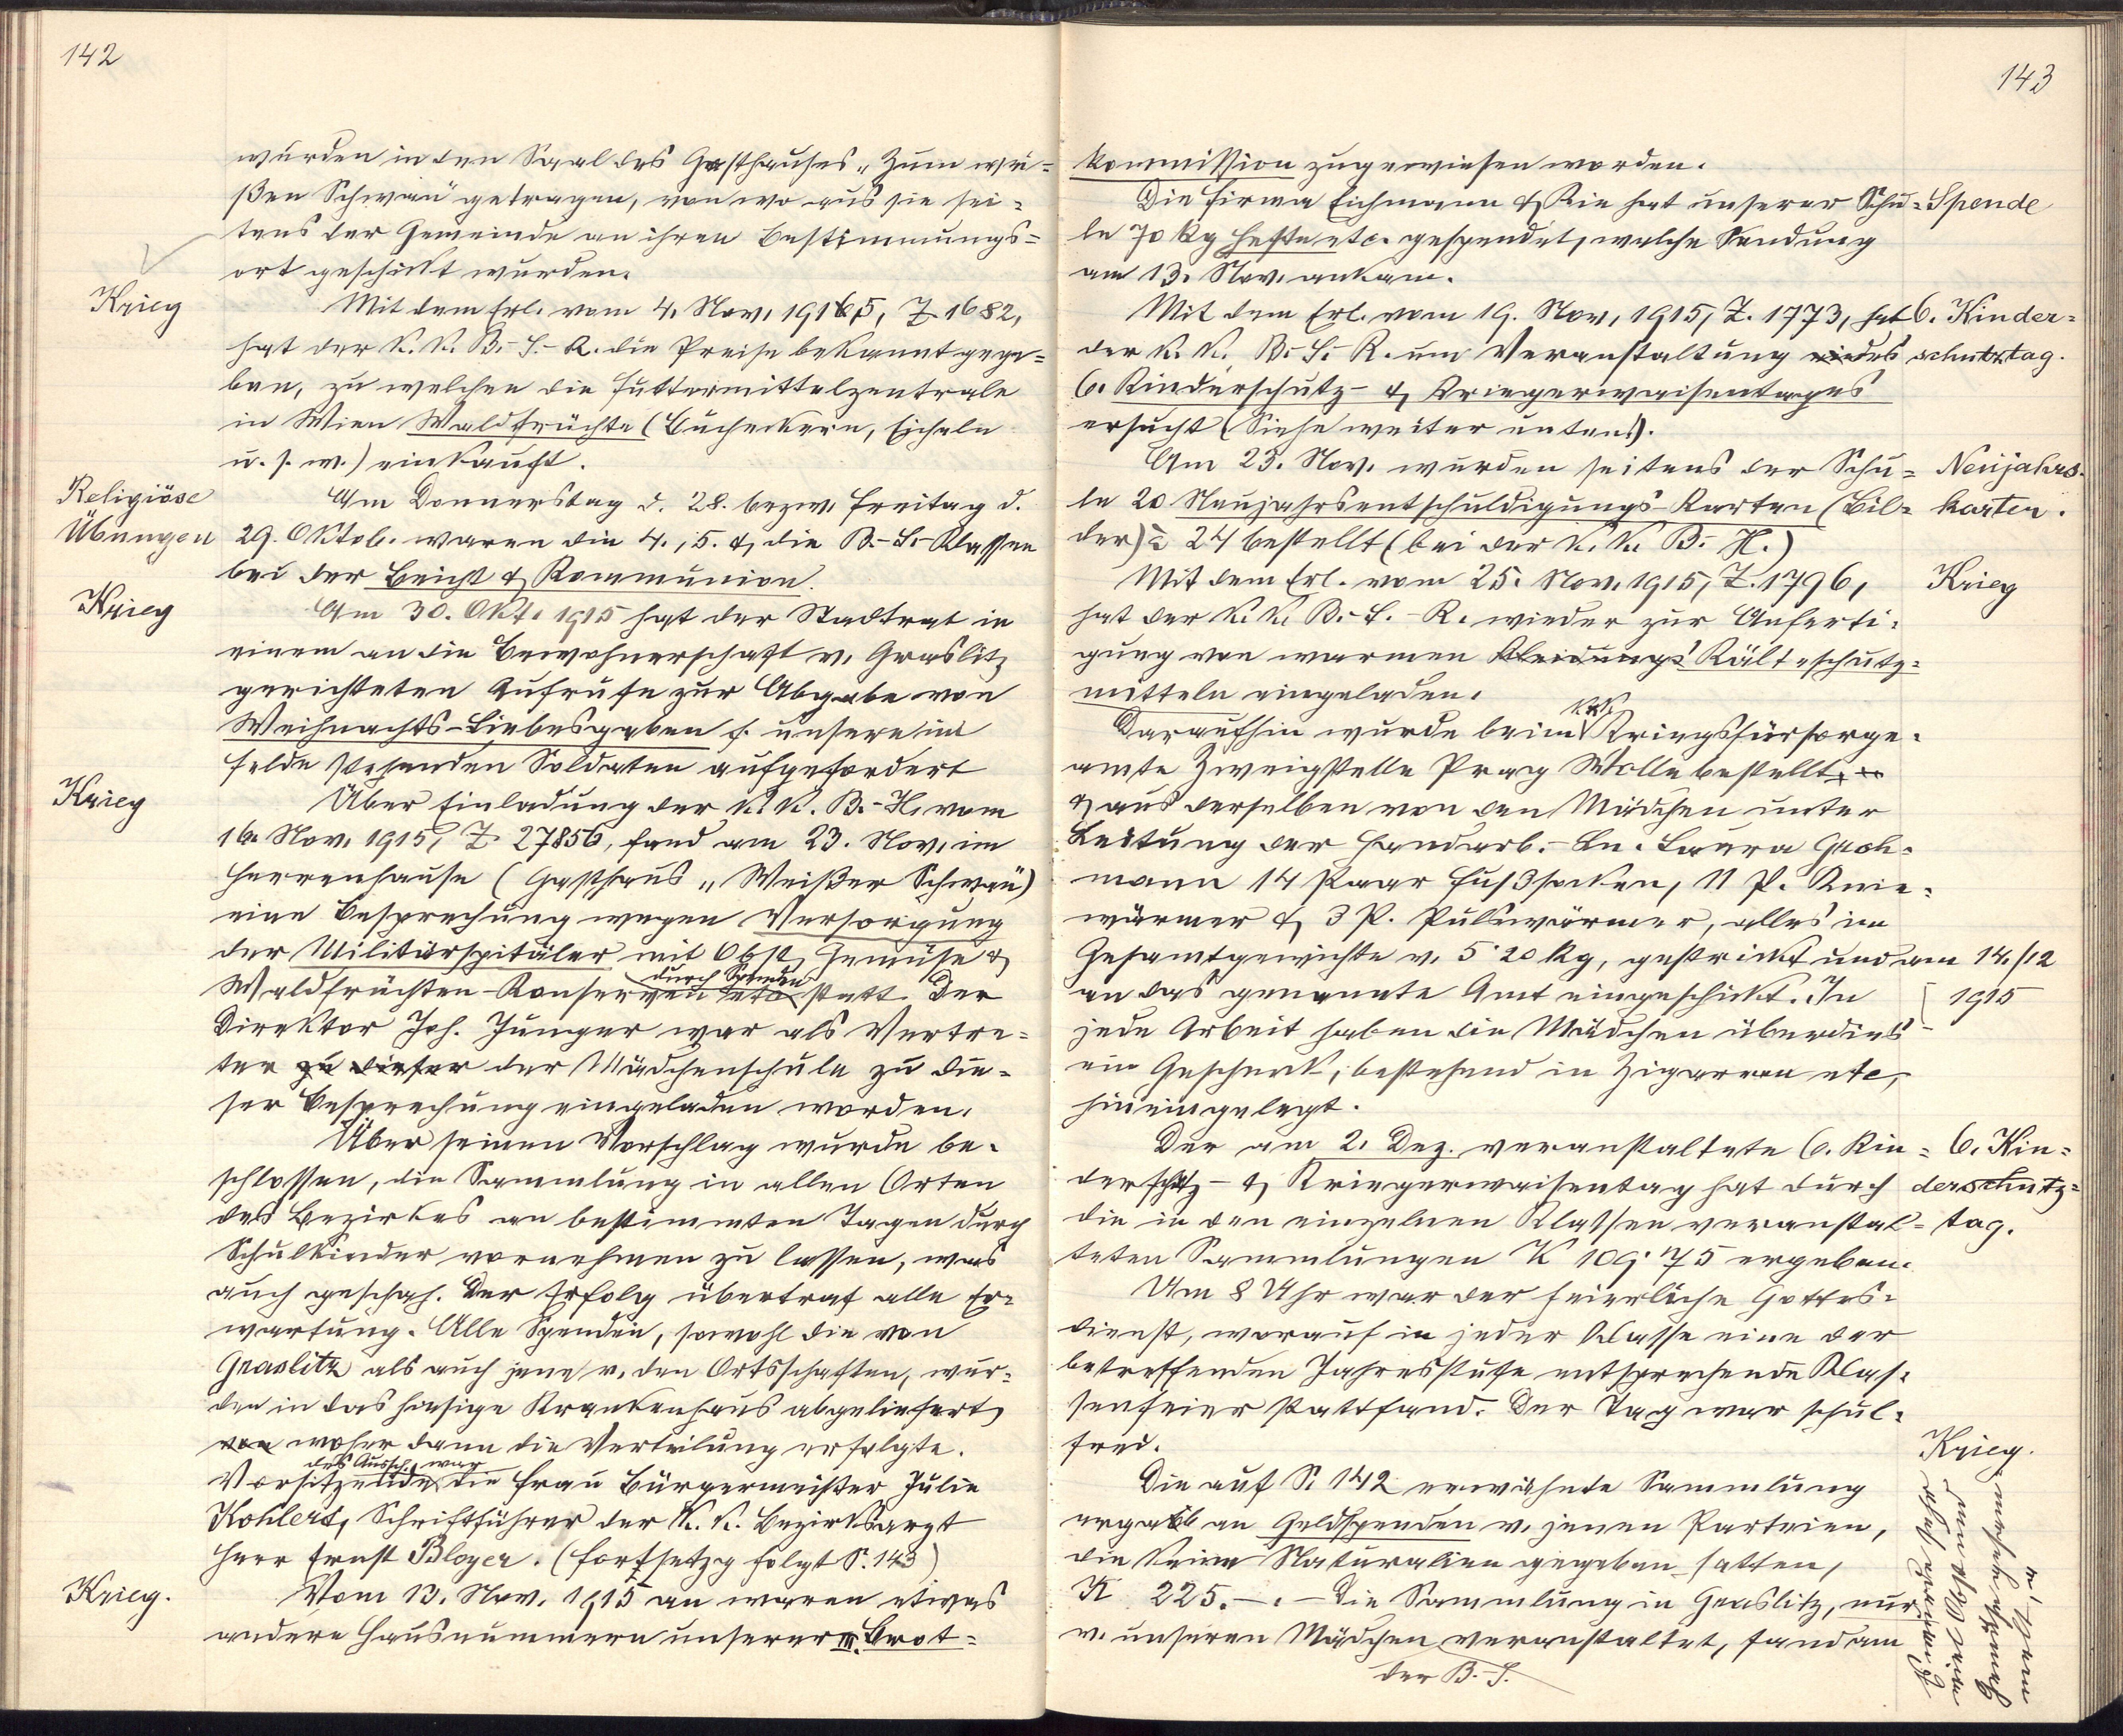 142
wurden in den Saal des Gasthauses „Zum wei-
ßen Schwan" getragen, von wo aus sie sei-
tens der Gemeinde an ihren Bestimmungs-
ort geschickt wurden.
Krieg
Mit dem Erl. vom 4. Nov. 1915, Z. 1682,
hat der k. k. B.-S.-R. die Preise bekannt gege-
ben, zu welchen die Futtermittelzentrale
in Wien Waldfrüchte (Bucheckern, Eicheln
u. s. w.) einkauft.
Religiöse
Übungen
Am Donnerstag d. 28. bezw. Freitag d.
29. Oktob. waren die 4., 5. & die B.-S.-Klassen
bei der Beicht & Kommunion.
Krieg
Am 30. Okt. 1915 hat der Stadtrat in
einem an die Bewohnerschaft v. Graslitz
gerichteten Aufrufe zur Abgabe von
Weihnachts-Liebesgaben f. unsere im
Felde stehenden Soldaten aufgefordert
Krieg
Über Einladung der k. k. B.-H. vom
16. Nov. 1915, Z. 27856, fand am 23. Nov. im
Herrenhause (Gasthaus „Weißer Schwan")
eine Besprechung wegen Versorgung
der Militärspitäler mit Obst, Gemüse &
durch Spenden
Waldfrüchten-Konserven etc. statt. Der
Direktor Joh. Junger war als Vertre-
ter zu dieser der Mädchenschule zu die-
ser Besprechung eingeladen worden.
Über seinen Vorschlag wurde be-
schlossen, die Sammlung in allen Orten
des Bezirkes an bestimmten Tagen durch
Schulkinder vornehmen zu lassen, was
auch geschah. Der Erfolg übertraf alle Er-
wartung. Alle Spenden, sowohl die von
Graslitz als auch jene v. den Ortschaften, wur-
den in das hiesige Krankenhaus abgeliefert,
von woher dann die Verteilung erfolgte.
des Aussch. war
Vorsitzende die Frau Bürgermeister Julie
Kohlert, Schriftführer der k. k. Bezirksarzt
Herr Ernst Bloyer. (Fortsetzg folgt S. 143)
Krieg.
Vom 13. Nov. 1915 an waren etwas
andere Hausnummern unserer III. Brot-
143
kommission zugewiesen worden.
Die Firma Eichmann & Kie hat unserer Schu-
Spende
le 70 kg Hefte etc. gespendet, welche Sendung
am 13. Nov. ankam.
Mit dem Erl. vom 19. Nov. 1915, Z. 1773, hat
6. Kinder-
schutztag.
der k. k. B.-S.-R. um Veranstaltung des
6. Kinderschutz- & Kriegerwaisentages
ersucht (Siehe weiter unten!).
Am 23. Nov. wurden seitens der Schu-
Neujahrs-
karten.
le 20 Neujahrsentschuldigungs-Karten (Bil-
der) à 24 bestellt (bei der k. k. B.-H.)
Mit dem Erl. vom 25. Nov. 1915, Z. 1796,
Krieg
hat der k. k. B.-S.-R. wieder zur Anferti-
gung von warmen Kleidungs Kälteschutz-
mitteln eingeladen.
k. k.
Daraufhin wurde beim Kriegsfürsorge-
amte Zweigstelle Prag Wolle bestellt
& aus derselben von den Mädchen unter
Leitung der Handarb.-Ln. Laura Groh-
mann 14 Paar Fußsocken, 11 P. Knie-
wärmer & 3 P. Pulswärmer, alles im
Gesamtgewichte v. 5·20 kg, gestrickt und am 14./12
1915
an das genannte Amt eingeschickt. In
jede Arbeit haben die Mädchen überdies
ein Geschenk, bestehend in Zigarren etc,
hineingelegt.
Der am 2. Dez. veranstaltete 6. Kin-
6. Kin-
derschutz-
tag.
derschutz- & Kriegerwaisentag hat durch
die in den einzelnen Klassen veranstal-
teten Sammlungen K 109·75 ergeben.
Um 8 Uhr war der feierliche Gottes-
dienst, worauf in jeder Klasse eine der
betreffenden Jahresstufe entsprechende Klas-
senfeier stattfand. Der Tag war schul-
frei.
Krieg.
Die auf S. 142 erwähnte Sammlung
ergab an Geldspenden v. jenen Parteien,
die keine Naturalien gegeban hatten,
K 225.–. – Die Sammlung in Graslitz, nur
v. unseren Mädchen veranstaltet, fand am
der B.-S.